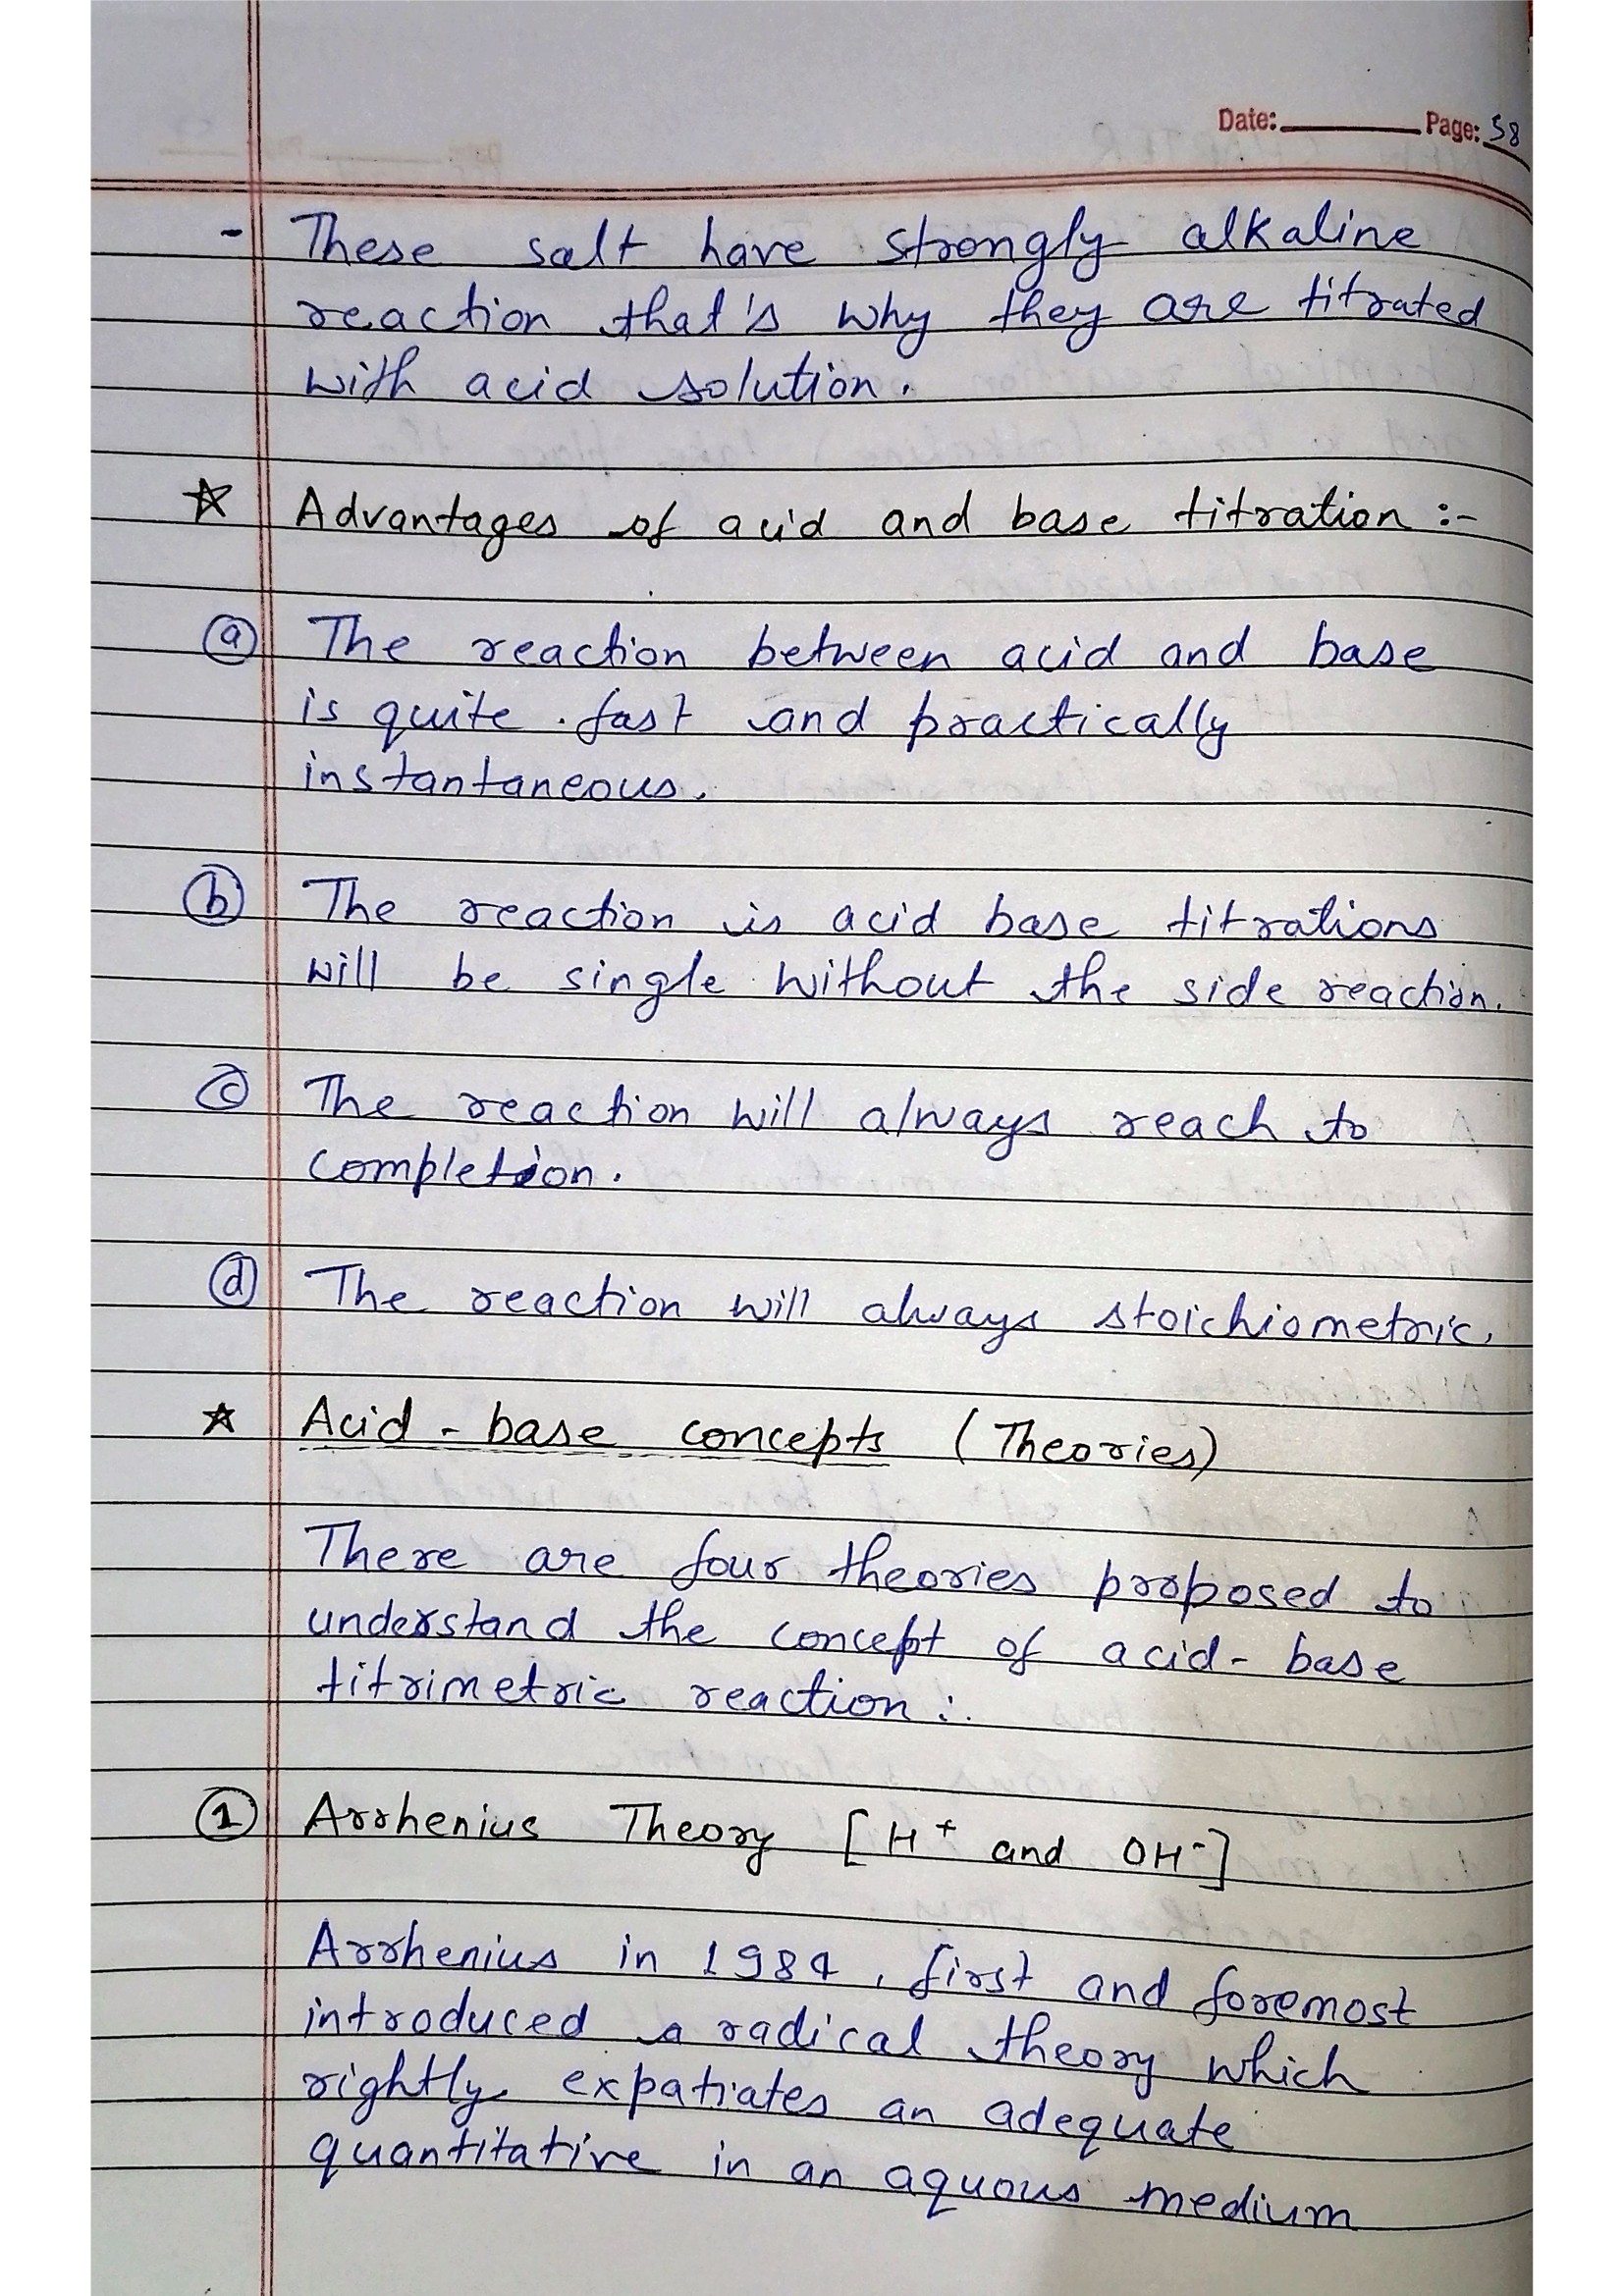 Date: Page: 58
- These salt have strongly alkaline
reaction that's why they are titrated
with acid solution.
☆ Advantages of acid and base titration :-
ⓐ The reaction between acid and base
is quite fast and practically
instantaneous.
ⓑ The reaction is acid base titrations
will be single without the side reaction.
ⓒ The reaction will always reach to
completion.
ⓓ The reaction will always stoichiometric.
☆ Acid - base concepts (Theories)
There are four theories proposed to
understand the concept of acid - base
titrimetric reaction :.
① Arrhenius Theory [H⁺ and OH⁻]
Arrhenius in 1984, first and foremost
introduced a radical theory which
rightly expatiates an adequate
quantitative in an aquous medium